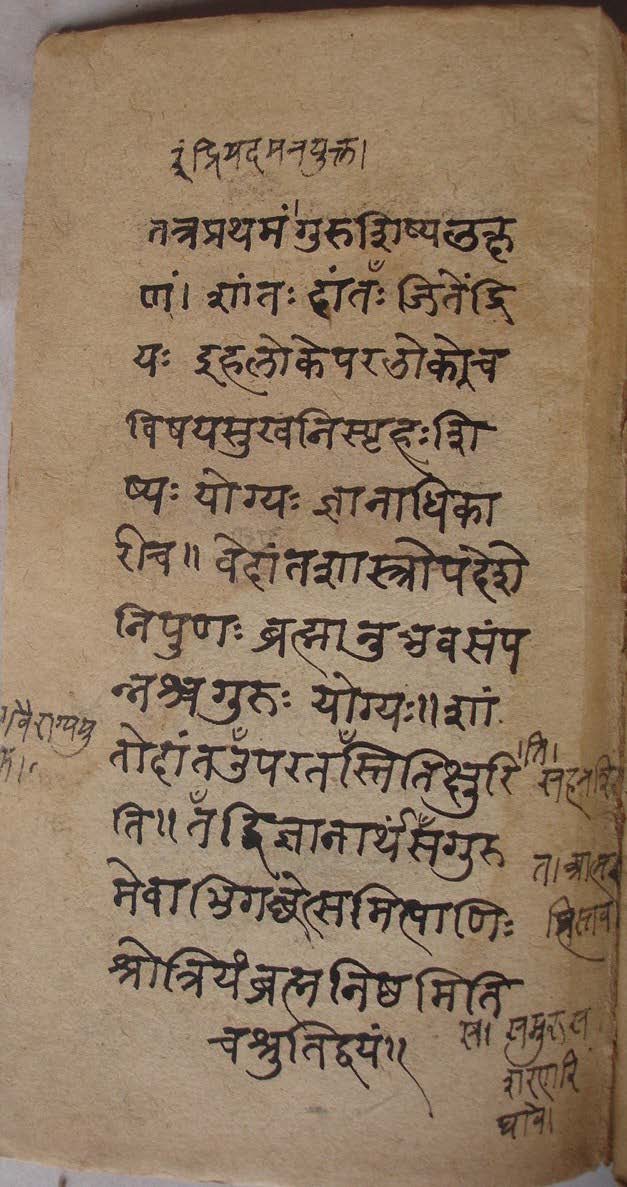 इंद्रियदमनयुक्त।
तत्रप्रथमं गुरुशिष्यलक्ष
णं। शांतः दांतः जितेंद्रि
यः इहलोकेपरलोकेच
विषयसुखनिस्पृहःशि
ष्यः योग्यः ज्ञानाधिका
रीच॥ वेदांतशास्त्रोपदेशे
निपुणः ब्रह्मानुभवसंप
न्नश्चगुरुः योग्यः॥ शां
तोदांतउपरतस्तितिक्षुरि
ति॥ तद्विज्ञानार्थंसगुरु
मेवाभिगच्छेत्समित्पाणिः
श्रोत्रियंब्रह्मनिष्ठमिति
चश्रुतिद्वयं॥